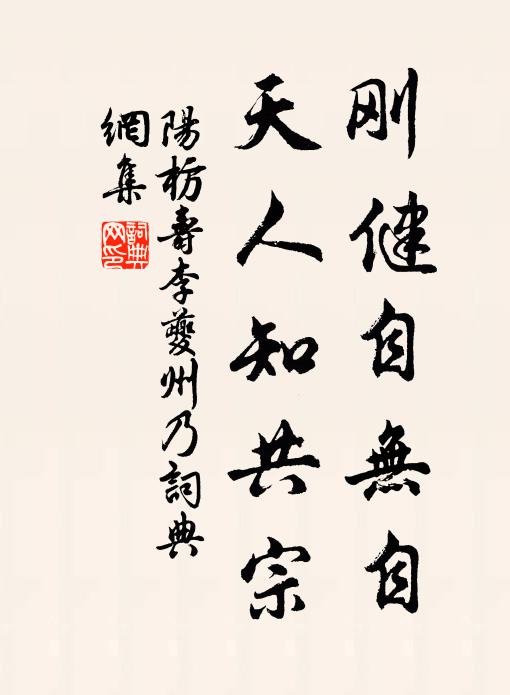 刚健自無自
天人知共宗
陽枋壽李夔州乃詞典
網集
詞典網印